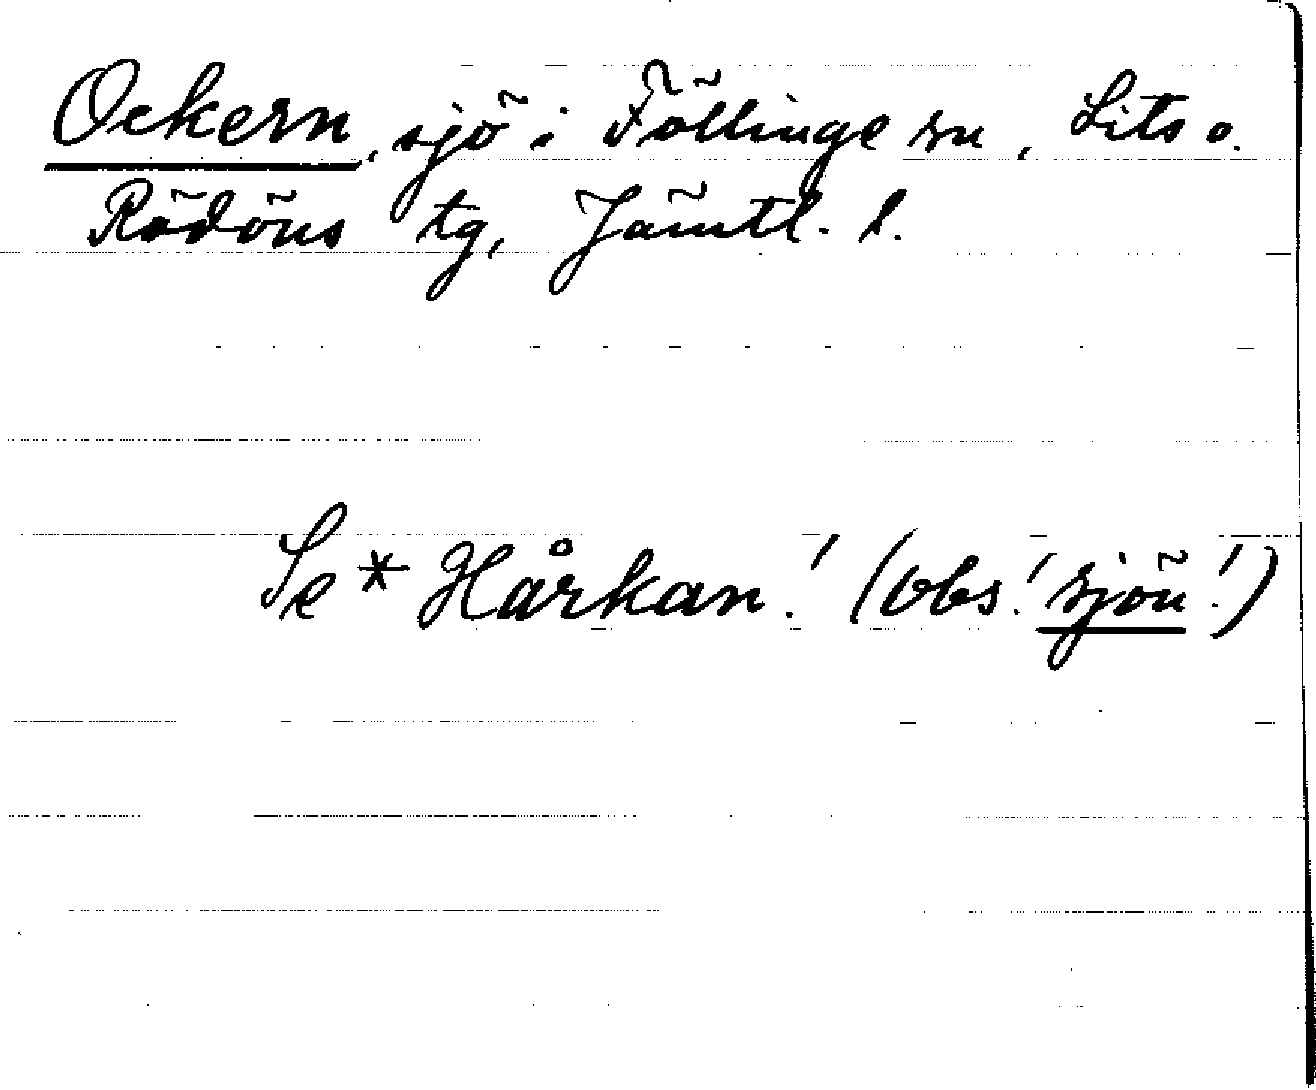 Ockern, sjö i Föllinge sn, Lits o.
Rödöns tg, Jämtl. l.
Se * Hårkan! (obs! sjön!)